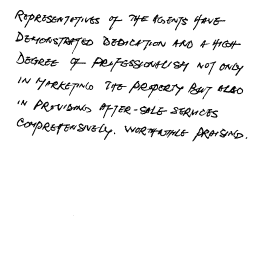 REPRESENTATIVES OF THE AGENTS HAVE
DEMONSTRATED DEDICATION AND A HIGH
DEGREE OF PROFESSIONALISM NOT ONLY
IN MARKETING THE PROPERTY BUT ALSO
IN PROVIDING AFTER-SALE SERVICES
COMPREHENSIVELY. WORTHWHILE PRAISING.